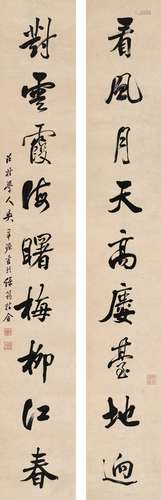 看風月天高廔臺地迥
對雲霞海曙梅柳江春
學人吳